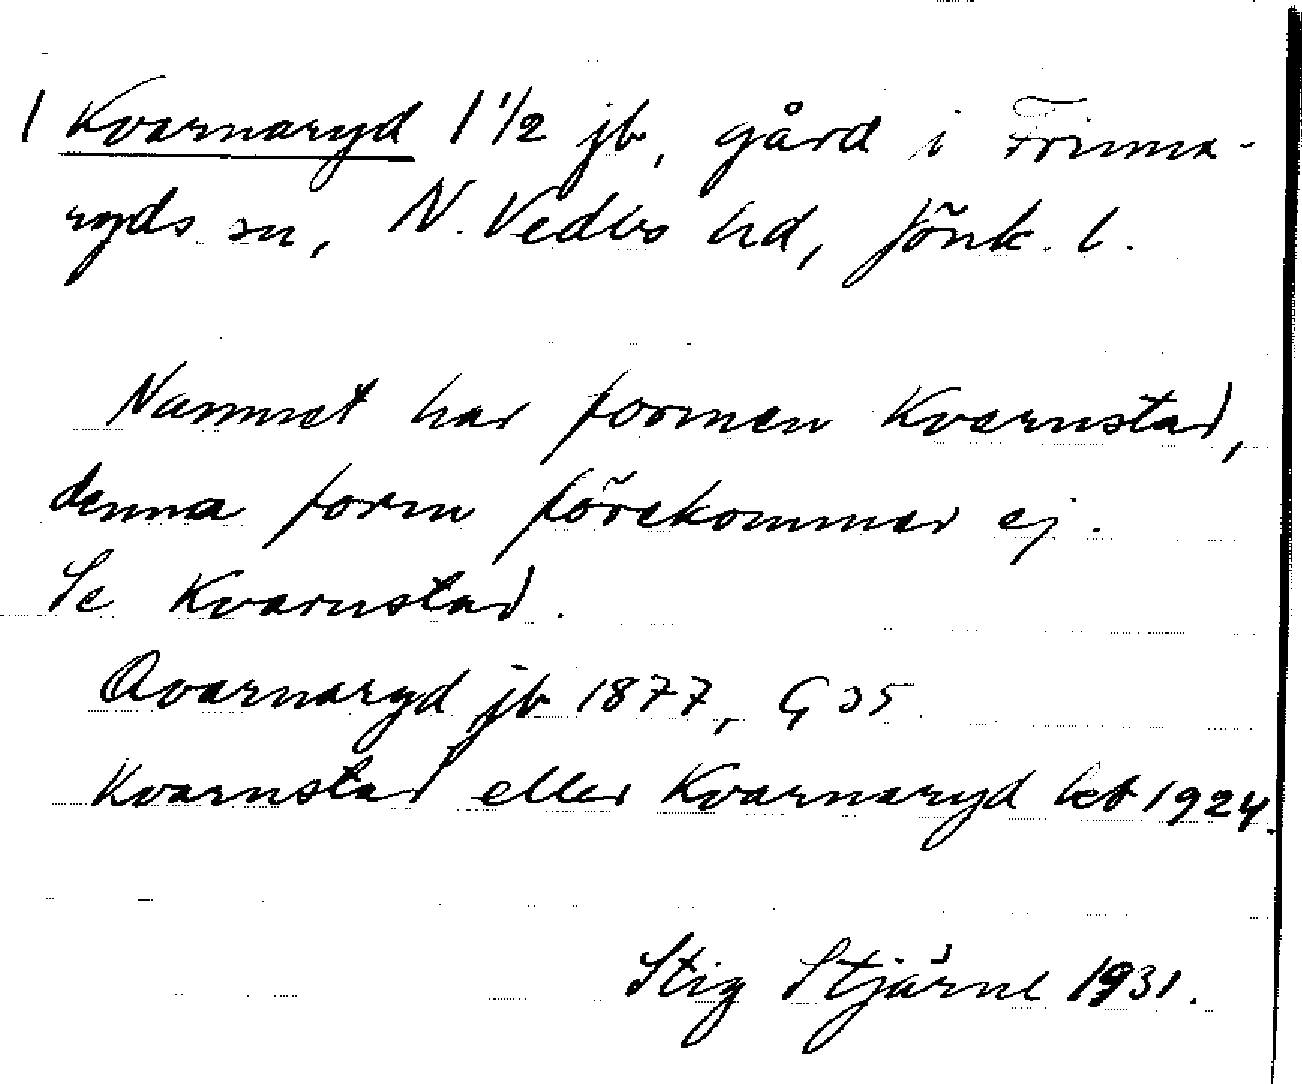 1 Kvarnaryd 1 1/2 jb, gård i Frinna-
ryds sn, N. Vedbo hd, Jönk. l.
Namnet har formen Kvarnstad,
denna form förekommer ej.
Se Kvarnstad.
Qvarnaryd jb 1877, G 35
Kvarnstad eller Kvarnaryd kb 1924.
Stig Stjärne 1931.